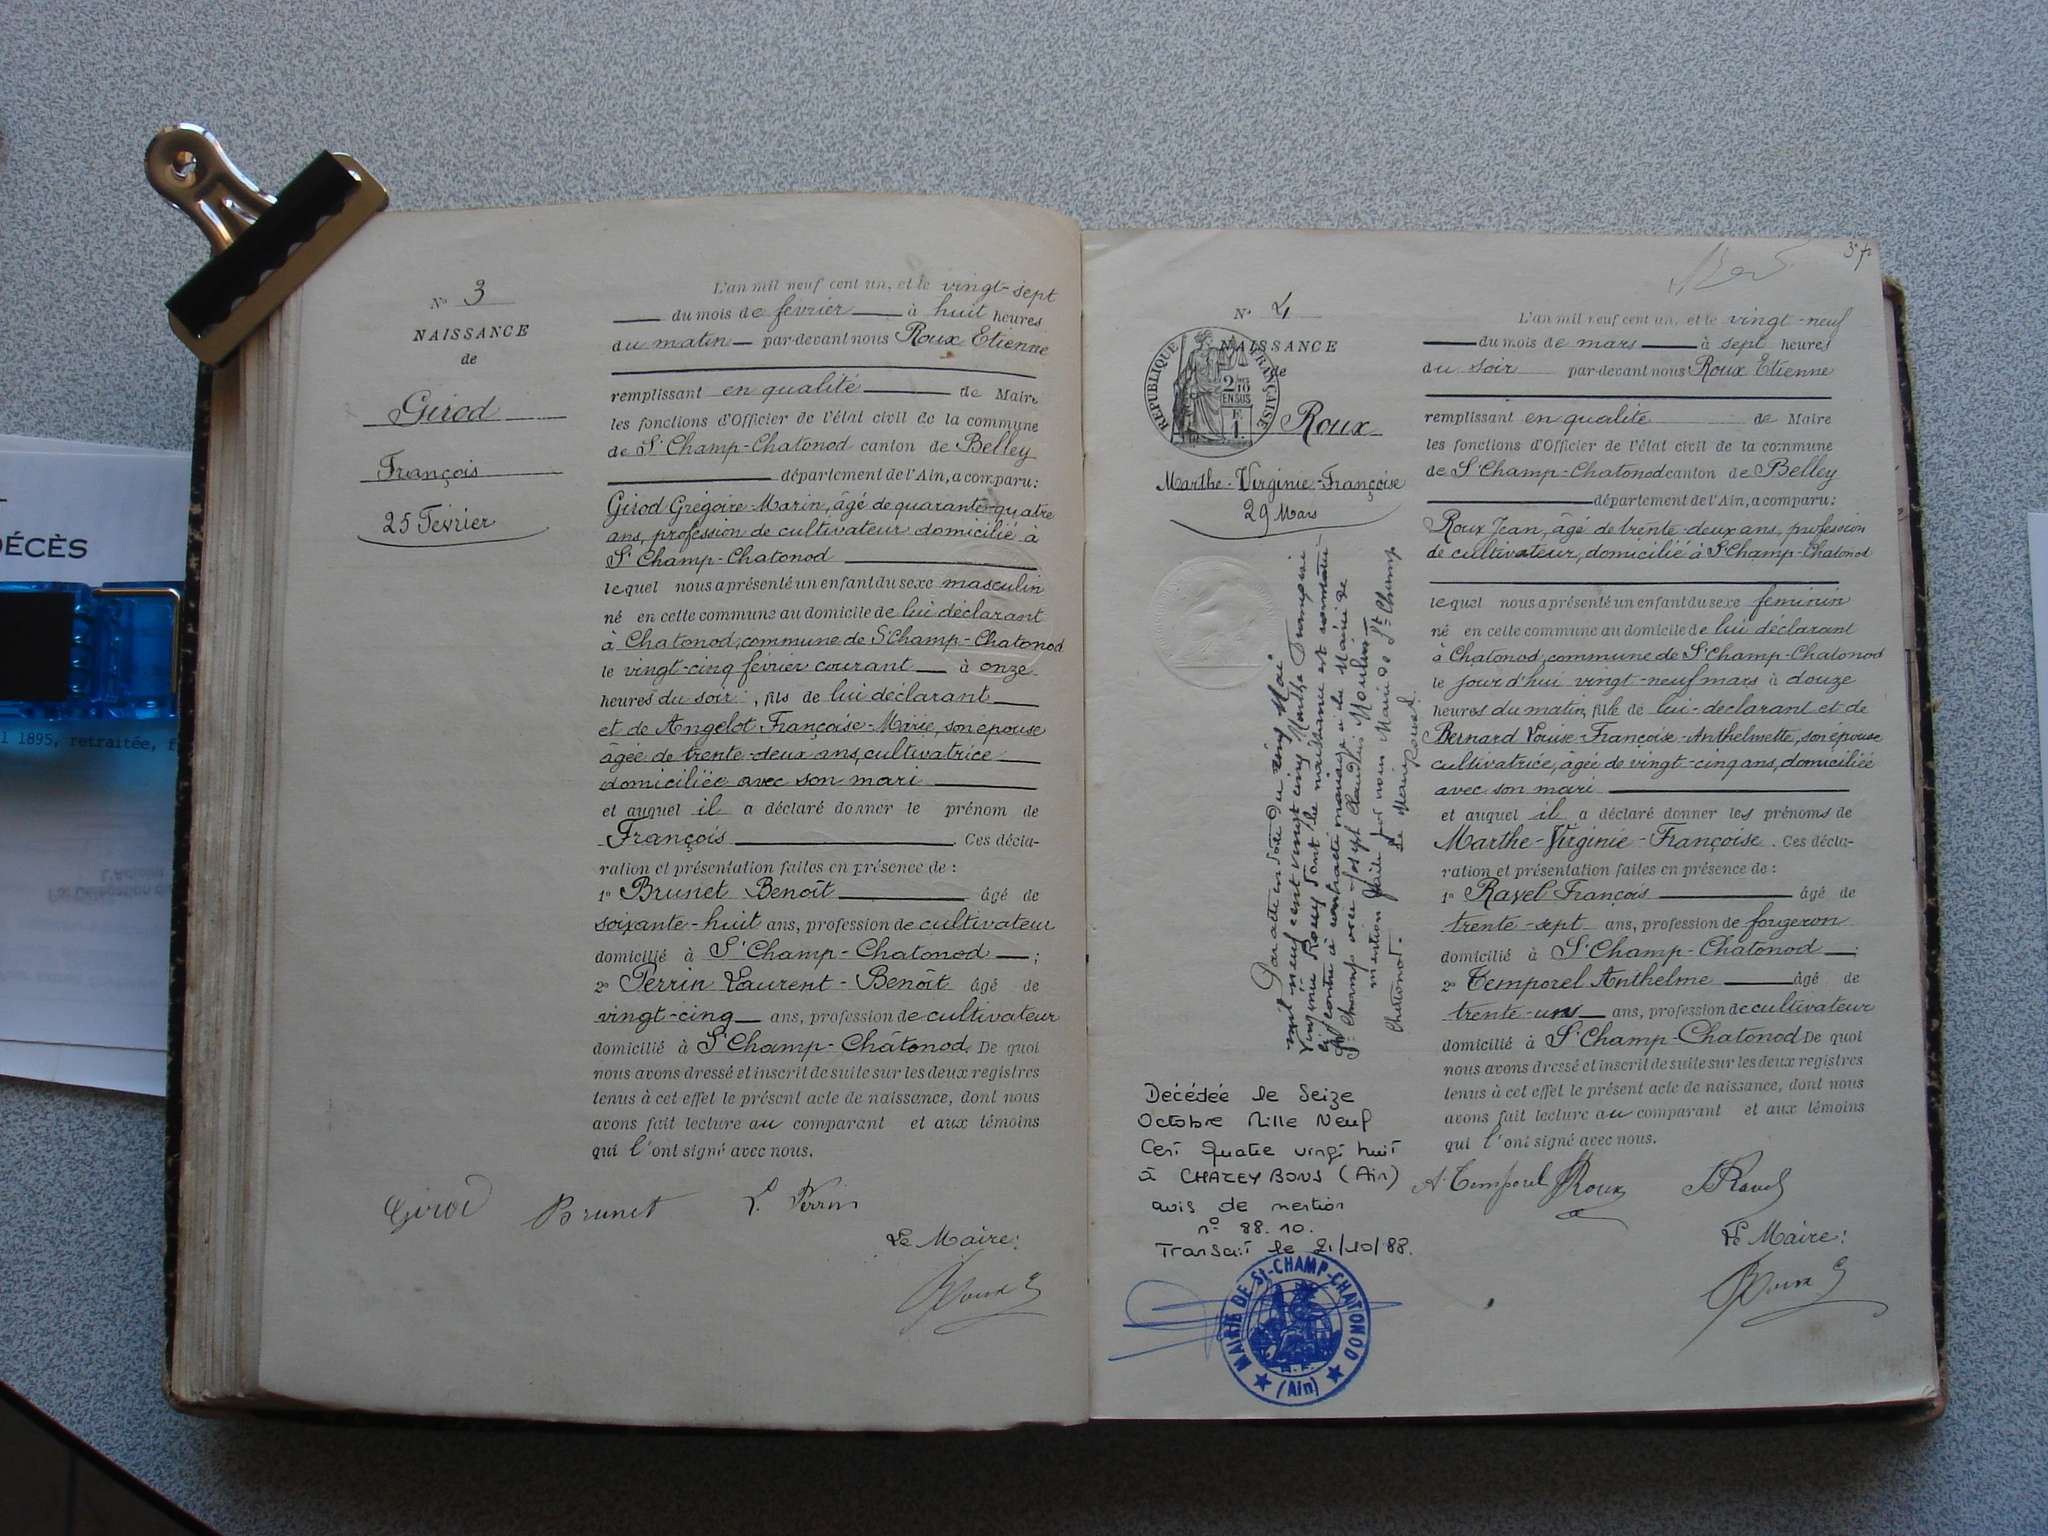 N° 3
NAISSANCE
de
Girod
François
25 Février
L'an mil neuf cent un, et le vingt-sept
du mois de février à huit heures
du matin par-devant nous Roux Etienne
remplissant en qualité de Maire
les fonctions d'Officier de l'état civil de la commune
de St Champ-Chatonod canton de Belley
département de l'Ain, a comparu:
Girod Grégoire-Marin, âgé de quarante-quatre
ans, profession de cultivateur domicilié à
St Champ-Chatonod
lequel nous a présenté un enfant du sexe masculin
né en cette commune au domicile de lui déclarant
à Chatonod, commune de St Champ-Chatonod
le vingt-cinq février courant à onze
heures du soir, fils de lui déclarant
et de Angelot Françoise-Marie, son épouse
âgée de trente-deux ans, cultivatrice
domiciliée avec son mari
et auquel il a déclaré donner le prénom de
François. Ces décla-
ration et présentation faites en présence de :
1° Brunet Benoît âgé de
soixante-huit ans, profession de cultivateur
domicilié à St Champ-Chatonod ;
2° Perrin Laurent-Benoît âgé de
vingt-cinq ans, profession de cultivateur
domicilié à St Champ-Châtonod. De quoi
nous avons dressé et inscrit de suite sur les deux registres
tenus à cet effet le présent acte de naissance, dont nous
avons fait lecture au comparant et aux témoins
qui l'ont signé avec nous.
Girod Brunet L. Perrin
Le Maire:
Roux E
3e f
N° 4
NAISSANCE
de
REPUBLIQUE FRANÇAISE
2/10
EN SUS
E
1.
Roux
Marthe-Virginie-Françoise
29 Mars
Par acte en date du cinq Mai
mil neuf cent vingt cinq Marthe Françoise
Virginie Roux dont la naissance est constatée
ci-contre a contracté mariage à la Mairie de
St Champ avec Joseph Claudius Moulin
mention faite par nous Maire de St Champ
Chatonod.
Le Maire
Décédée le Seize
Octobre Mille Neuf
Cent Quatre vingt huit
à CHAZEY BONS (Ain)
avis de mention
n° 88.10.
Transcrit le 21/10/88.
MAIRIE DE St-CHAMP-CHATONOD
R.F.
(Ain)
L'an mil neuf cent un, et le vingt-neuf
du mois de mars à sept heures
du soir par-devant nous Roux Etienne
remplissant en qualité de Maire
les fonctions d'Officier de l'état civil de la commune
de St Champ-Chatonod canton de Belley
département de l'Ain, a comparu:
Roux Jean, âgé de trente-deux ans, profession
de cultivateur, domicilié à St Champ-Chatonod
lequel nous a présenté un enfant du sexe féminin
né en cette commune au domicile de lui déclarant
à Chatonod, commune de St Champ-Chatonod
le jourd'hui vingt-neuf mars à douze
heures du matin, fille de lui-déclarant et de
Bernard Louise-Françoise-Anthelmette, son épouse
cultivatrice, âgée de vingt-cinq ans, domiciliée
avec son mari
et auquel il a déclaré donner les prénoms de
Marthe-Virginie-Françoise. Ces décla-
ration et présentation faites en présence de :
1° Ravel François âgé de
trente-sept ans, profession de forgeron
domicilié à St Champ-Chatonod ;
2° Temporel Anthelme âgé de
trente-uns ans, profession de cultivateur
domicilié à St Champ-Chatonod De quoi
nous avons dressé et inscrit de suite sur les deux registres
tenus à cet effet le présent acte de naissance, dont nous
avons fait lecture au comparant et aux témoins
qui l'ont signé avec nous.
A. Temporel J Roux F Ravel
Le Maire:
Roux E
DÉCÈS
l 1895, retraitée, f